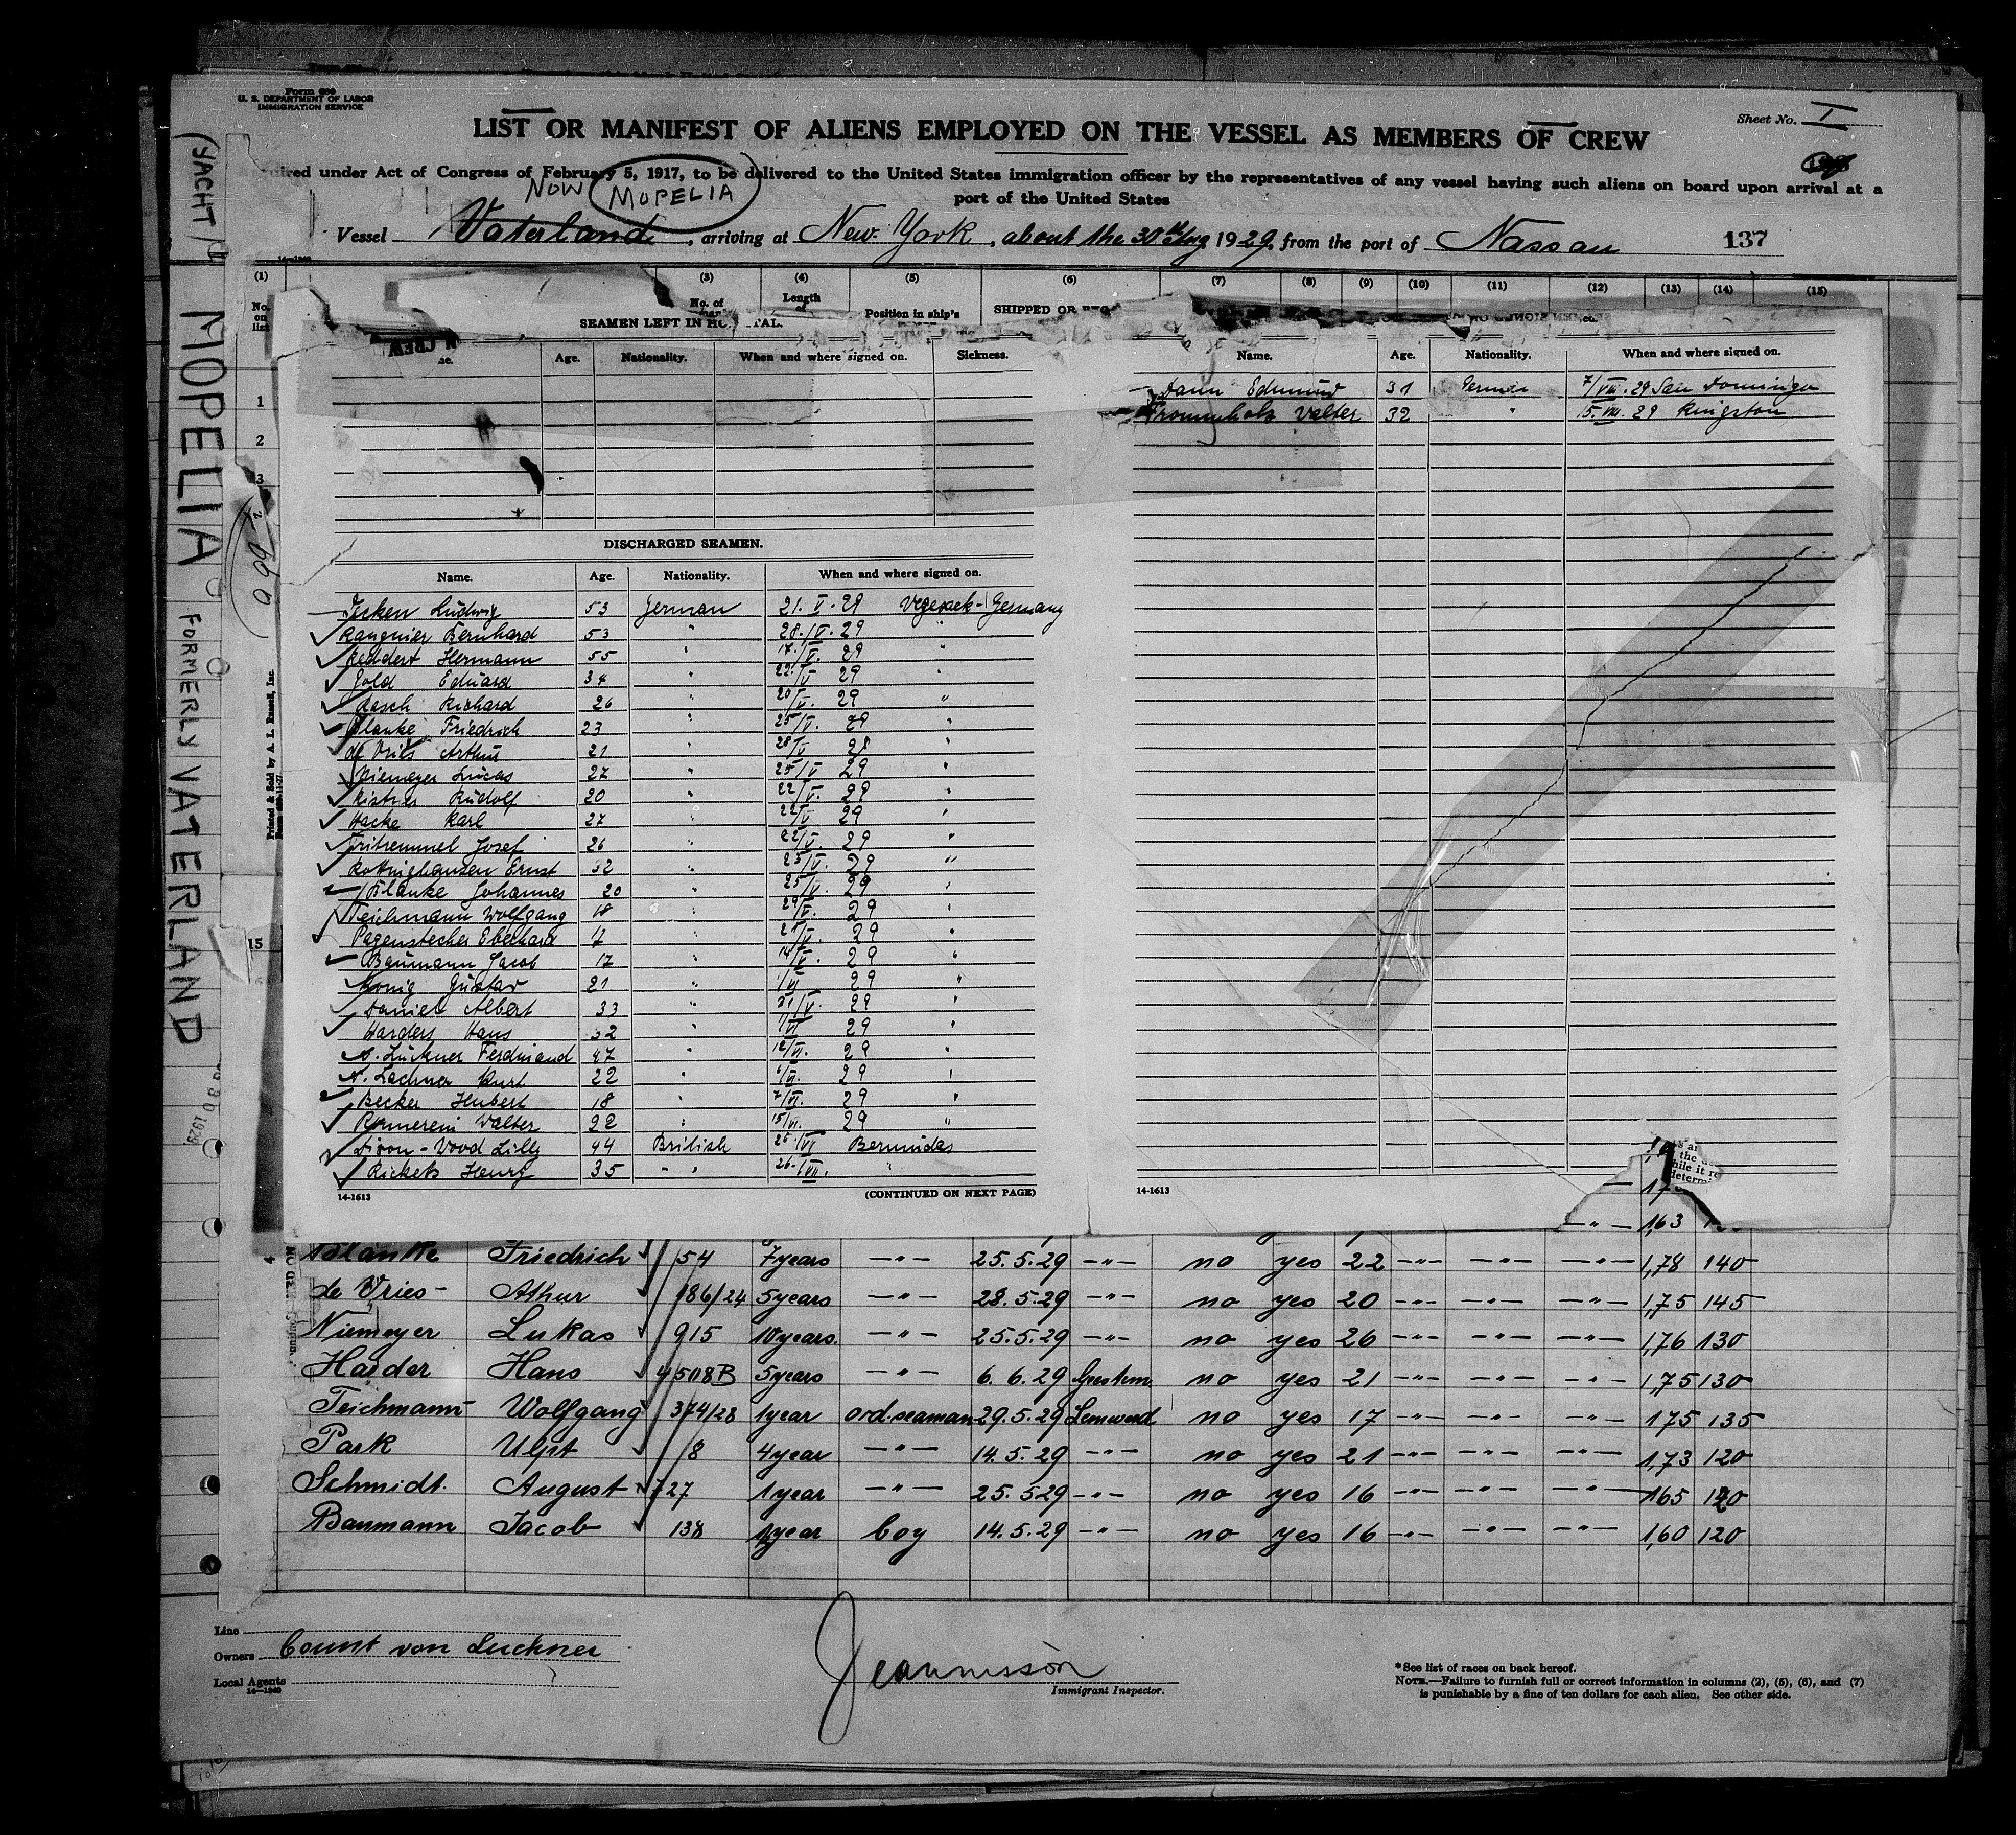 Form 680
U. S. DEPARTMENT OF LABOR
IMMIGRATION SERVICE
Sheet No. I
LIST OR MANIFEST OF ALIENS EMPLOYED ON THE VESSEL AS MEMBERS OF CREW
under Act of Congress of February 5, 1917, to be delivered to the United States immigration officer by the representatives of any vessel having such aliens on board upon arrival at a
port of the United States
NOW MOPELIA
Vessel Vaterland, arriving at New York, about the 30th Aug 1929, from the port of Nassau 137
(1) (3) (4) (5) (6) (7) (8) (9) (10) (11) (12) (13) (14) (15)
No. on list
No. of
Length of
Position in ship's
SHIPPED OR
SEAMEN LEFT IN
Age. Nationality. When and where signed on. Sickness.
Name. Age. Nationality. When and where signed on.
Dann Edmund 31 German 7/VIII. 29 San Domingo
Frommholz Valter 32 " 15. VIII. 29 Kingston
1
2
3
15
DISCHARGED SEAMEN.
Name. Age. Nationality. When and where signed on.
Ludwig 53 German 21. V. 29 Vegesack-Germany
Bernhard 53 " 28./V. 29 "
Reddert Hermann 55 " 17./V. 29 "
Gold Eduard 34 " 22./V 29 "
Rasch Richard 26 " 20/V. 29 "
Blanke Friedrich 23 " 25/V. 29 "
de Vries Arthur 21 " 28/V 29 "
Niemeyer Lucas 27 " 25/V 29 "
Kistner Rudolf 20 " 22/V. 29 "
Hacke Karl 27 " 22/V 29 "
Josef 26 " 22/V. 29 "
Ernst 32 " 25/V. 29 "
Blanke Johannes 20 " 25/V. 29 "
Teichmann Wolfgang 18 " 29/V. 29 "
Pagenstecher Eberhard 17 " 29 "
Baumann Jacob 17 " 14/V. 29 "
König Gustav 21 " 1/VI 29 "
Daniel Albert 33 " 31/V. 29 "
Harders Hans 22 " 29 "
v. Luckner Ferdinand 47 " 12/VI. 29 "
v. Lachner Kurt 22 " 6/VI. 29 "
Becker Hubert 18 " 7/VI. 29 "
Walter 22 " 15/VI. 29 "
Dixon-Wood Lilly 44 British Bermudas
Rickets Henry 35 - " 26./VII. "
14-1613 (CONTINUED ON NEXT PAGE)
14-1613
1,63
Blanke Friedrich 54 7 years -"- 25.5.29 -"- no yes 22 -"- -"- -"- 1,78 140
de Vries Athur 186/24 5 years -"- 28.5.29 -"- no yes 20 -"- -"- -"- 1,75 145
Niemeyer Lukas 915 10 years. -"- 25.5.29 -"- no yes 26 -"- -"- -"- 1,76 130
Harder Hans 4508B 5 years -"- 6.6.29 no yes 21 -"- -"- -"- 1,75 130
Teichmann Wolfgang 374/28 1 year ord. seaman 29.5.29 Lemwerd no yes 17 -"- -"- -"- 175 135
Park 8 4 year -"- 14.5.29 -"- no yes 21 -"- -"- -"- 1,73 120
Schmidt. August 727 1 year -"- 25.5.29 -"- no yes 16 -"- -"- -"- 165 120
Baumann Jacob 138 1 year boy 14.5.29 -"- no yes 16 -"- -"- -"- 1,60 120
Line
Owners Count von Luckner
Local Agents
14-1240
Immigrant Inspector.
*See list of races on back hereof.
NOTE.—Failure to furnish full or correct information in columns (2), (5), (6), and (7)
is punishable by a fine of ten dollars for each alien. See other side.
(YACHT) MOPELIA FORMERLY VATERLAND
Printed & Sold by A. L. Russell, Inc.